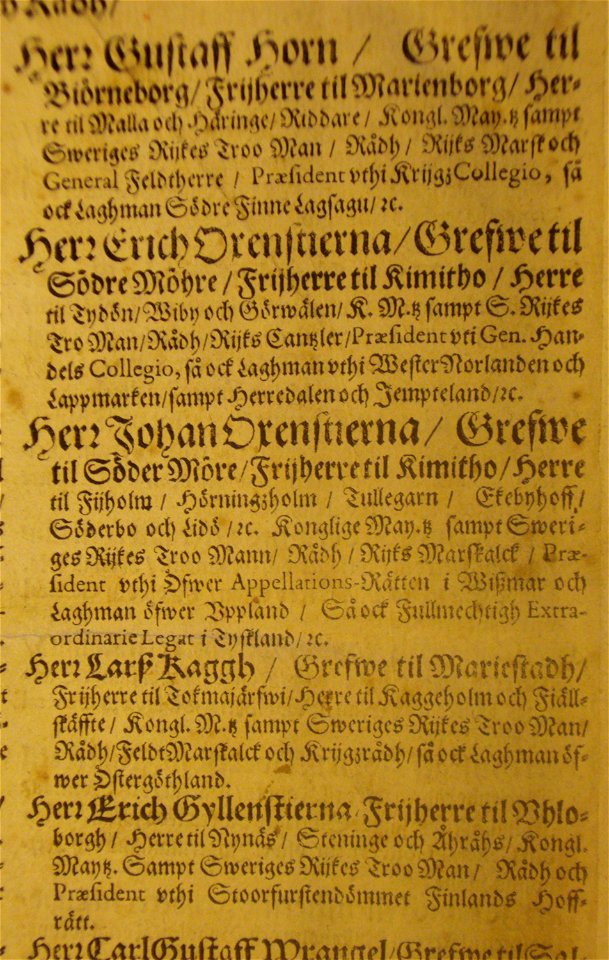 Rådh/
Herr Gustaff Horn / Grefwe til
Biörneborg/Frijherre til Marienborg/Her-
re til Malla och Häringe/Riddare/ Kongl. May.tz sampt
Sweriges Rijkes Troo Man / Rådh/ Rijks Marsk och
General Feldtherre / Præsident vthi KrijgzCollegio, så
ock Laghman Södre Finne Lagsagu/ꝛc.
Herr Erich Oxenstierna/Grefwe til
Södre Möhre/Frijherre til Kimitho/Herre
til Tydön/Wiby och Görwälen/K. M.tz sampt S. Rijkes
Tro Man/Rådh/Rijks Cantzler/Præsident vti Gen. Han-
dels Collegio, så ock Laghman vthi WesterNorlanden och
Lappmarken/sampt Herredalen och Jempteland/ꝛc.
Herr Johan Oxenstierna/ Grefwe
til Söder Möre/Frijherre til Kimitho/Herre
til Fijholm / Hörningzholm / Tullegarn / Ekebyhoff/
Söderbo och Lidö /ꝛc. Konglige May.tz sampt Sweri-
ges Rijkes Troo Mann/ Rådh/ Rijks Marskalck / Præ-
sident vthi Öfwer Appellations-Rätten i Wißmar och
Laghman öfwer Vppland / Så ock Fullmechtigh Extra-
ordinarie Legat i Tyskland/ꝛc.
Herr Larß Kaggh / Grefwe til Mariestadh/
Frijherre til Tokmajärfwi/Herre til Kaggeholm och Fiäll-
skäffte/ Kongl. M.tz sampt Sweriges Rijkes Troo Man/
Rådh/FeldtMarskalck och Krijgzrådh/så ock Laghman öf-
wer Östergöthland.
Herr Erich Gyllenstierna Frijherre til Vhlo-
borgh/ Herre til Nynäs/ Steninge och Åhråhs/ Kongl.
Maytz. Sampt Sweriges Rijkes Troo Man/ Rådh och
Præsident vthi Stoorfurstendömmet Finlands Hoff-
rätt.
Herr Carl Gustaff Wrangel/Grefwe til Sal-